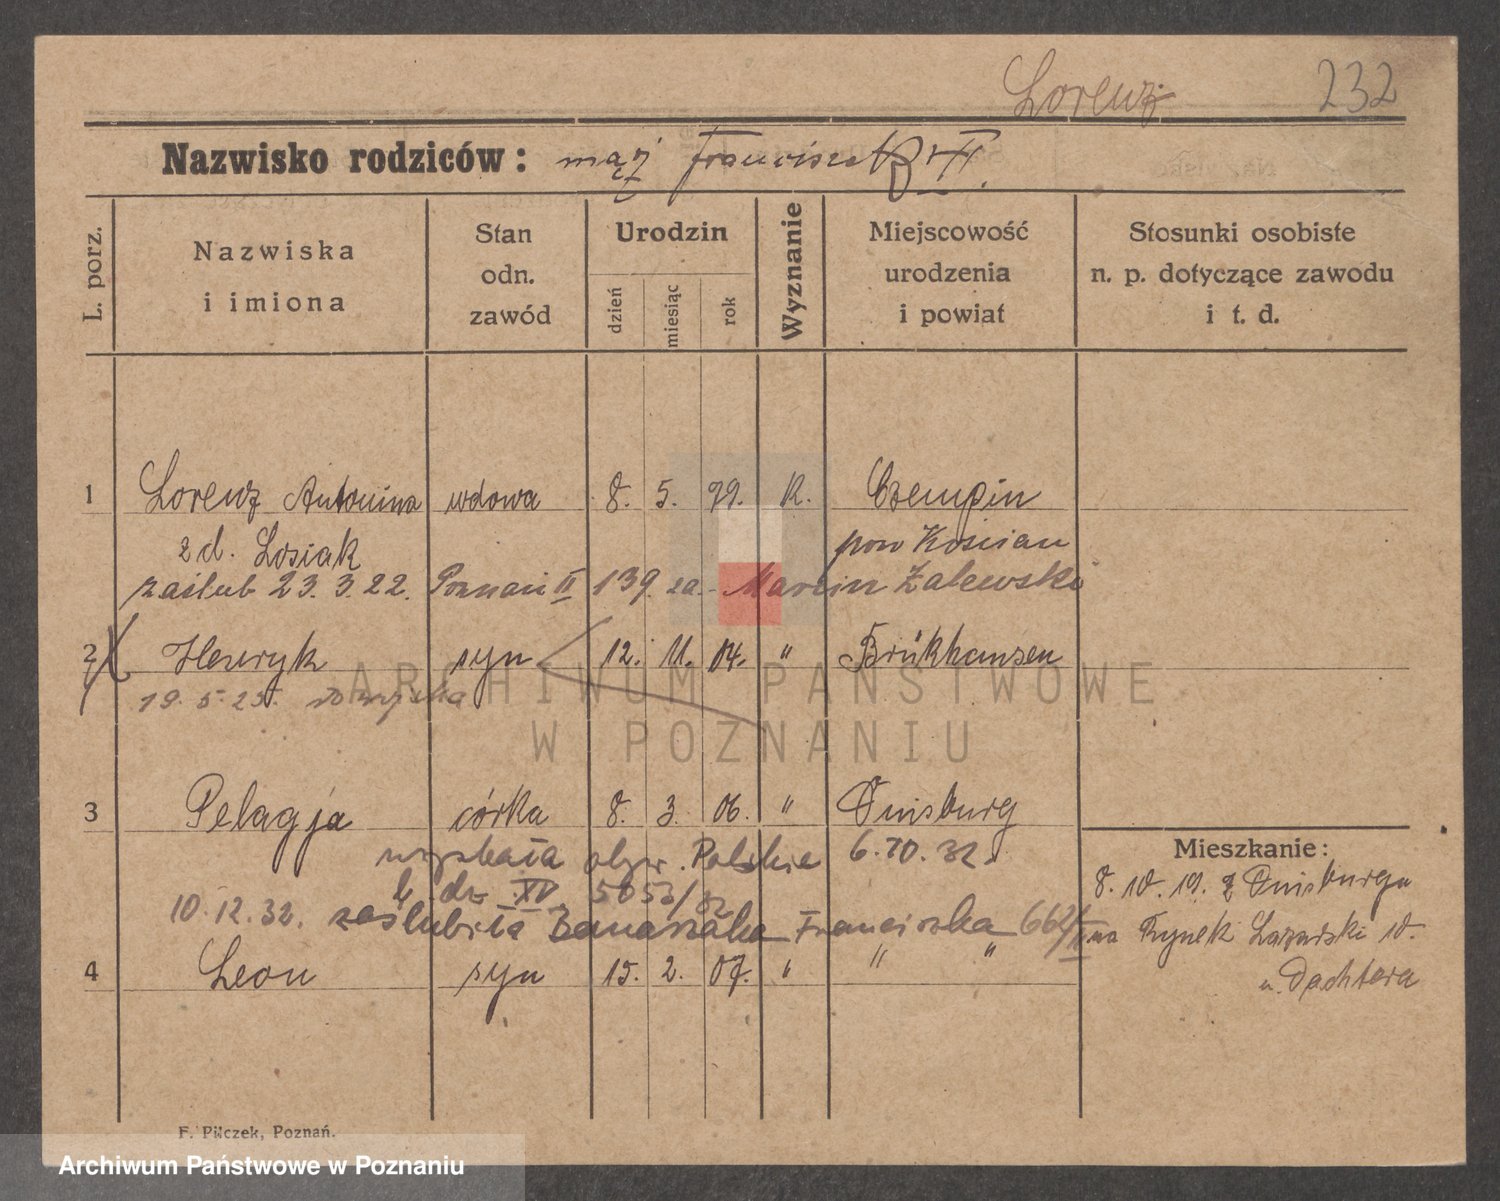 Lorenz 232
Nazwisko rodziców: mąż Franciszek
L. porz.
Nazwiska i imiona
Stan odn. zawód
Urodzin
dzień
miesiąc
rok
Wyznanie
Miejscowość urodzenia i powiat
Stosunki osobiste n. p. dotyczące zawodu i t. d.
1 Lorenz Antonina wdowa 8. 5. 99. K. Czempin
z d. Losiak pow Kościan
zaślub 23. 3. 22. Poznań II 139 za - Marcin Zalewski
2 Henryk syn 12. 11. 04. " Brükhausen
19. 5. 25.
3 Pelagja córka 8. 3. 06. " Duisburg
uzyskała obyw. Polskie 6.10.32.
L dz XV 5053/32
10.12.32. zaślubiła Banaszaka Franciszka 662/II
4 Leon syn 15. 2. 07. " " "
Mieszkanie:
8. 10. 19. z Duisburga
na Rynek Łazarski 10.
u. Dachtera
F. Pilczek, Poznań.
ARCHIWUM PAŃSTWOWE
W POZNANIU
Archiwum Państwowe w Poznaniu